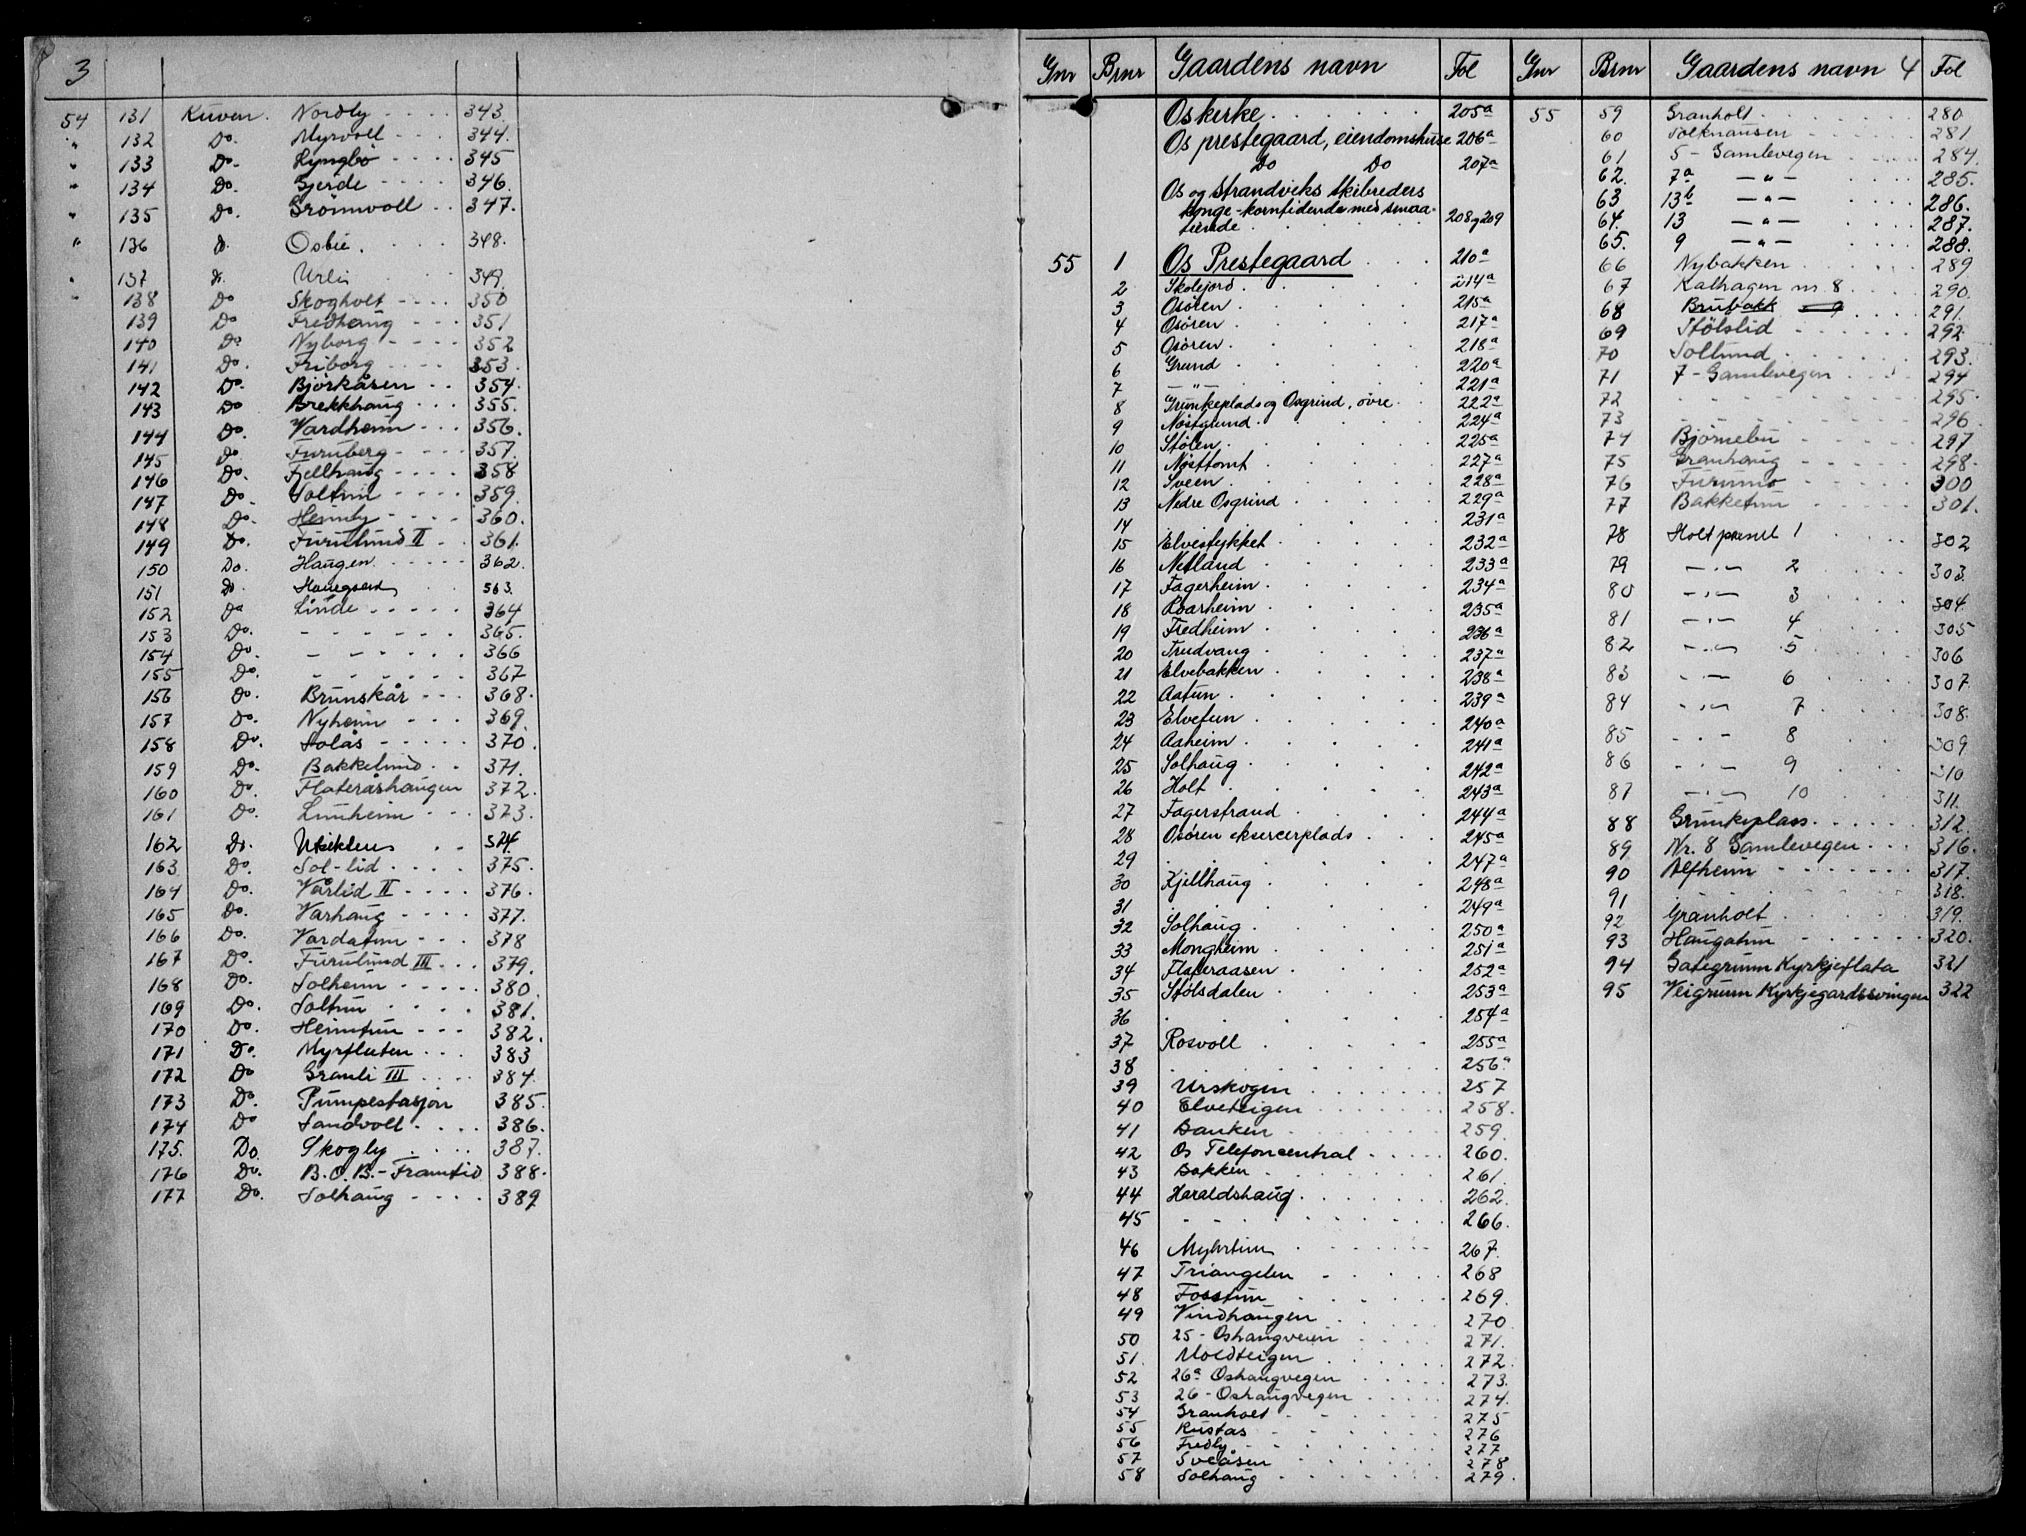 3
54 131 Kuven. Nordly 343
" 132 Do. Myrvoll 344
" 133 Do. Lyngbö 345
" 134 Do. Gjerde 346.
" 135 Do. Grönnvoll 347.
" 136 d. Osbu. 348.
" 137 d. Urli 349.
" 138 Do Skogholt 350
139 Do Fredhaug 351
140 Do Nyborg 352
141 Do. Friborg 353
142 Do. Björkåsen 354.
143 Do Brekkhaug 355.
144 Do. Vardheim 356.
145 do Furuberg 357.
146 Do. Fjellhaug 358
147 Do Soltun 359.
148 Do. Heimly 360.
149 Do. Furulund II 361.
150 Do. Haugen 362.
151 d. 363.
152 Do Linde 364
153 Do. - - - - - - 365.
154 Do. - - - - - - 366
155 Do. - - - - - - 367
156 do. Brunskår 368.
157 Do. Nyheim 369.
158 Do. Solås 370.
159 Do. Bakkelund 371.
160 Do. Flateråshaugen 372.
161 Do. Lunheim 373.
162 Do. 374.
163 Do. Sol-lid 375.
164 Do. Vårlid II 376.
165 Do. Varhaug 377.
166 Do. Vardatun 378
167 Do. Furulund III 379.
168 Do. Solheim 380
169 Do. Soltun 381.
170 Do. Heimtun 382.
171 Do. Myrfluten 383
172 Do Granli III 384.
173 Do. Pumpestasjon 385.
174 Do Sandvoll 386.
175. Do. Skogly 387.
176 Do. B.O.B.- Framtid 388.
177 Do. Solhaug 389
Gnr Brnr Gaardens navn Fol
Os kirke 205a
Os prestegaard, eiendomshuse 206a
Do Do 207a
Os og Strandviks skibreders
konge-korntiende med smaa-
tiende 208 g 209
55 1 Os Prestegaard 210a
2 Skolejord 214a
3 Osören 215a
4 Osören 217a
5 Osören 218a
6 Grund 220a
7 —"— 221a
8 Grunkeplads og Osgrind, øvre 222a
9 Nøstgrund 224a
10 Stølen 225a
11 Nøsttomt 227a
12 Sveen 228a
13 Nedre Osgrind 229a
14 231a
15 Elvestykket 232a
16 Netland 233a
17 Fagerheim 234a
18 Roarheim 235a
19 Fredheim 236a
20 Trudvang 237a
21 Elvebakken 238a
22 Aatun 239a
23 Elvetun 240a
24 Aaheim 241a
25 Solhaug 242a
26 Holt 243a
27 Fagerstrand 244a
28 Osören eksercerplads 245a
29 247a
30 Kjellhaug 248a
31 249a
32 Solhaug 250a
33 Mongheim 251a
34 Flateraasen 252a
35 Stölsdalen 253a
36 254a
37 Rosvoll 255a
38 256a
39 Urskogen 257
40 Elveteigen 258.
41 Banken 259.
42 Os Telefoncentral 260.
43 Bakken 261.
44 Haraldshaug 262.
45 - - 266.
46 Myhrtun 267.
47 Triangelen 268
48 Fosstun 269.
49 Vindhaugen 270
50 25 - Oshaugveien 271.
51. Moldteigen 272.
52 26a Oshaugvegen 273.
53 26 - Oshaugvegen 274.
54 Granholt 275
55 Rustås 276
56 Fredly 277
57 Sveåsen 278
58 Solhaug 279.
Gnr Brnr Gaardens navn 4 Fol
55 59 Granholt 280
60 Solknausen 281
61 5 - Gamlevegen 284.
62. 7a —"— 285.
63 13b —"— 286.
64. 13 —"— 287.
65. 9 —"— 288.
66 Nybakken 289
67 Kalhagen nr. 8 290.
68 Brubakk 291.
69 Stölslid 292
70 Sollund 293.
71 7 - Gamlevegen 294
72 295.
73 296
74 Bjørnebu 297
75 Granhaug 298.
76 Furumo 300
77 Bakketun 301.
78 Holt parsel 1 302
79 —"— 2 303.
80 —"— 3 304
81 —"— 4 305
82 —"— 5 306
83 —"— 6 307
84 —"— 7 308.
85 —"— 8 309
86 —"— 9 310
87 —"— 10 311.
88 Grunkeplass 312.
89 Nr. 8 Gamlevegen 316.
90 Alfheim 317.
91 318.
92 Granholt 319.
93 Haugatun 320.
94 Gategrunn Kyrkjeflata 321
95 Veigrunn Kyrkjegardssvingen 322